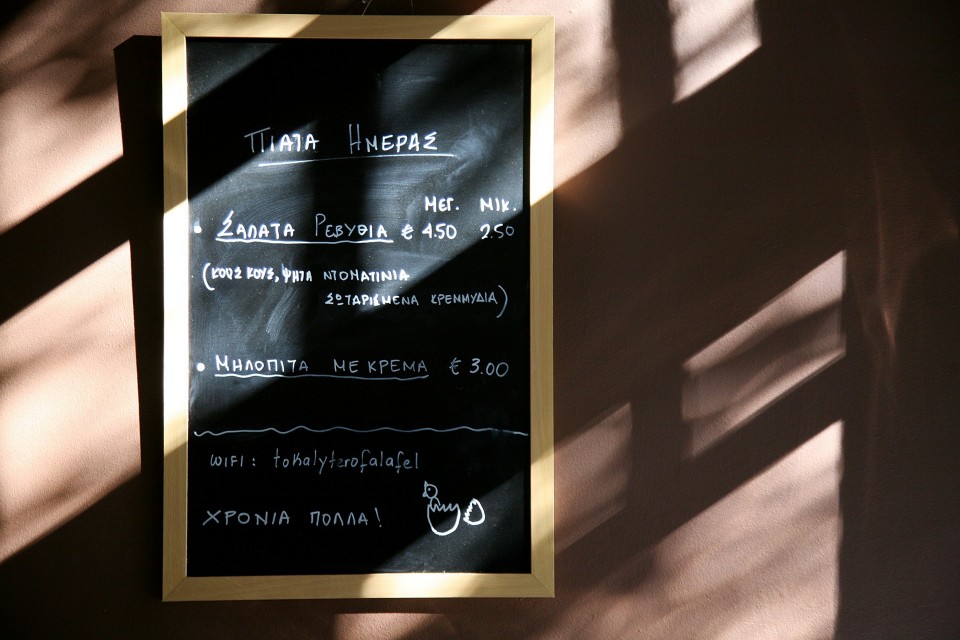 ΠΙΑΤΑ ΗΜΕΡΑΣ
ΜΕΓ. ΜΙΚ.
• ΣΑΛΑΤΑ ΡΕΒΥΘΙΑ € 4.50 2.50
(ΚΟΥΣ ΚΟΥΣ, ΨΗΤΑ ΝΤΟΜΑΤΙΝΙΑ
ΣΩΤΑΡΙΣΜΕΝΑ ΚΡΕΜΜΥΔΙΑ)
• ΜΗΛΟΠΙΤΑ ΜΕ ΚΡΕΜΑ € 3.00
WIFI: tokalyterofalafel
ΧΡΟΝΙΑ ΠΟΛΛΑ!